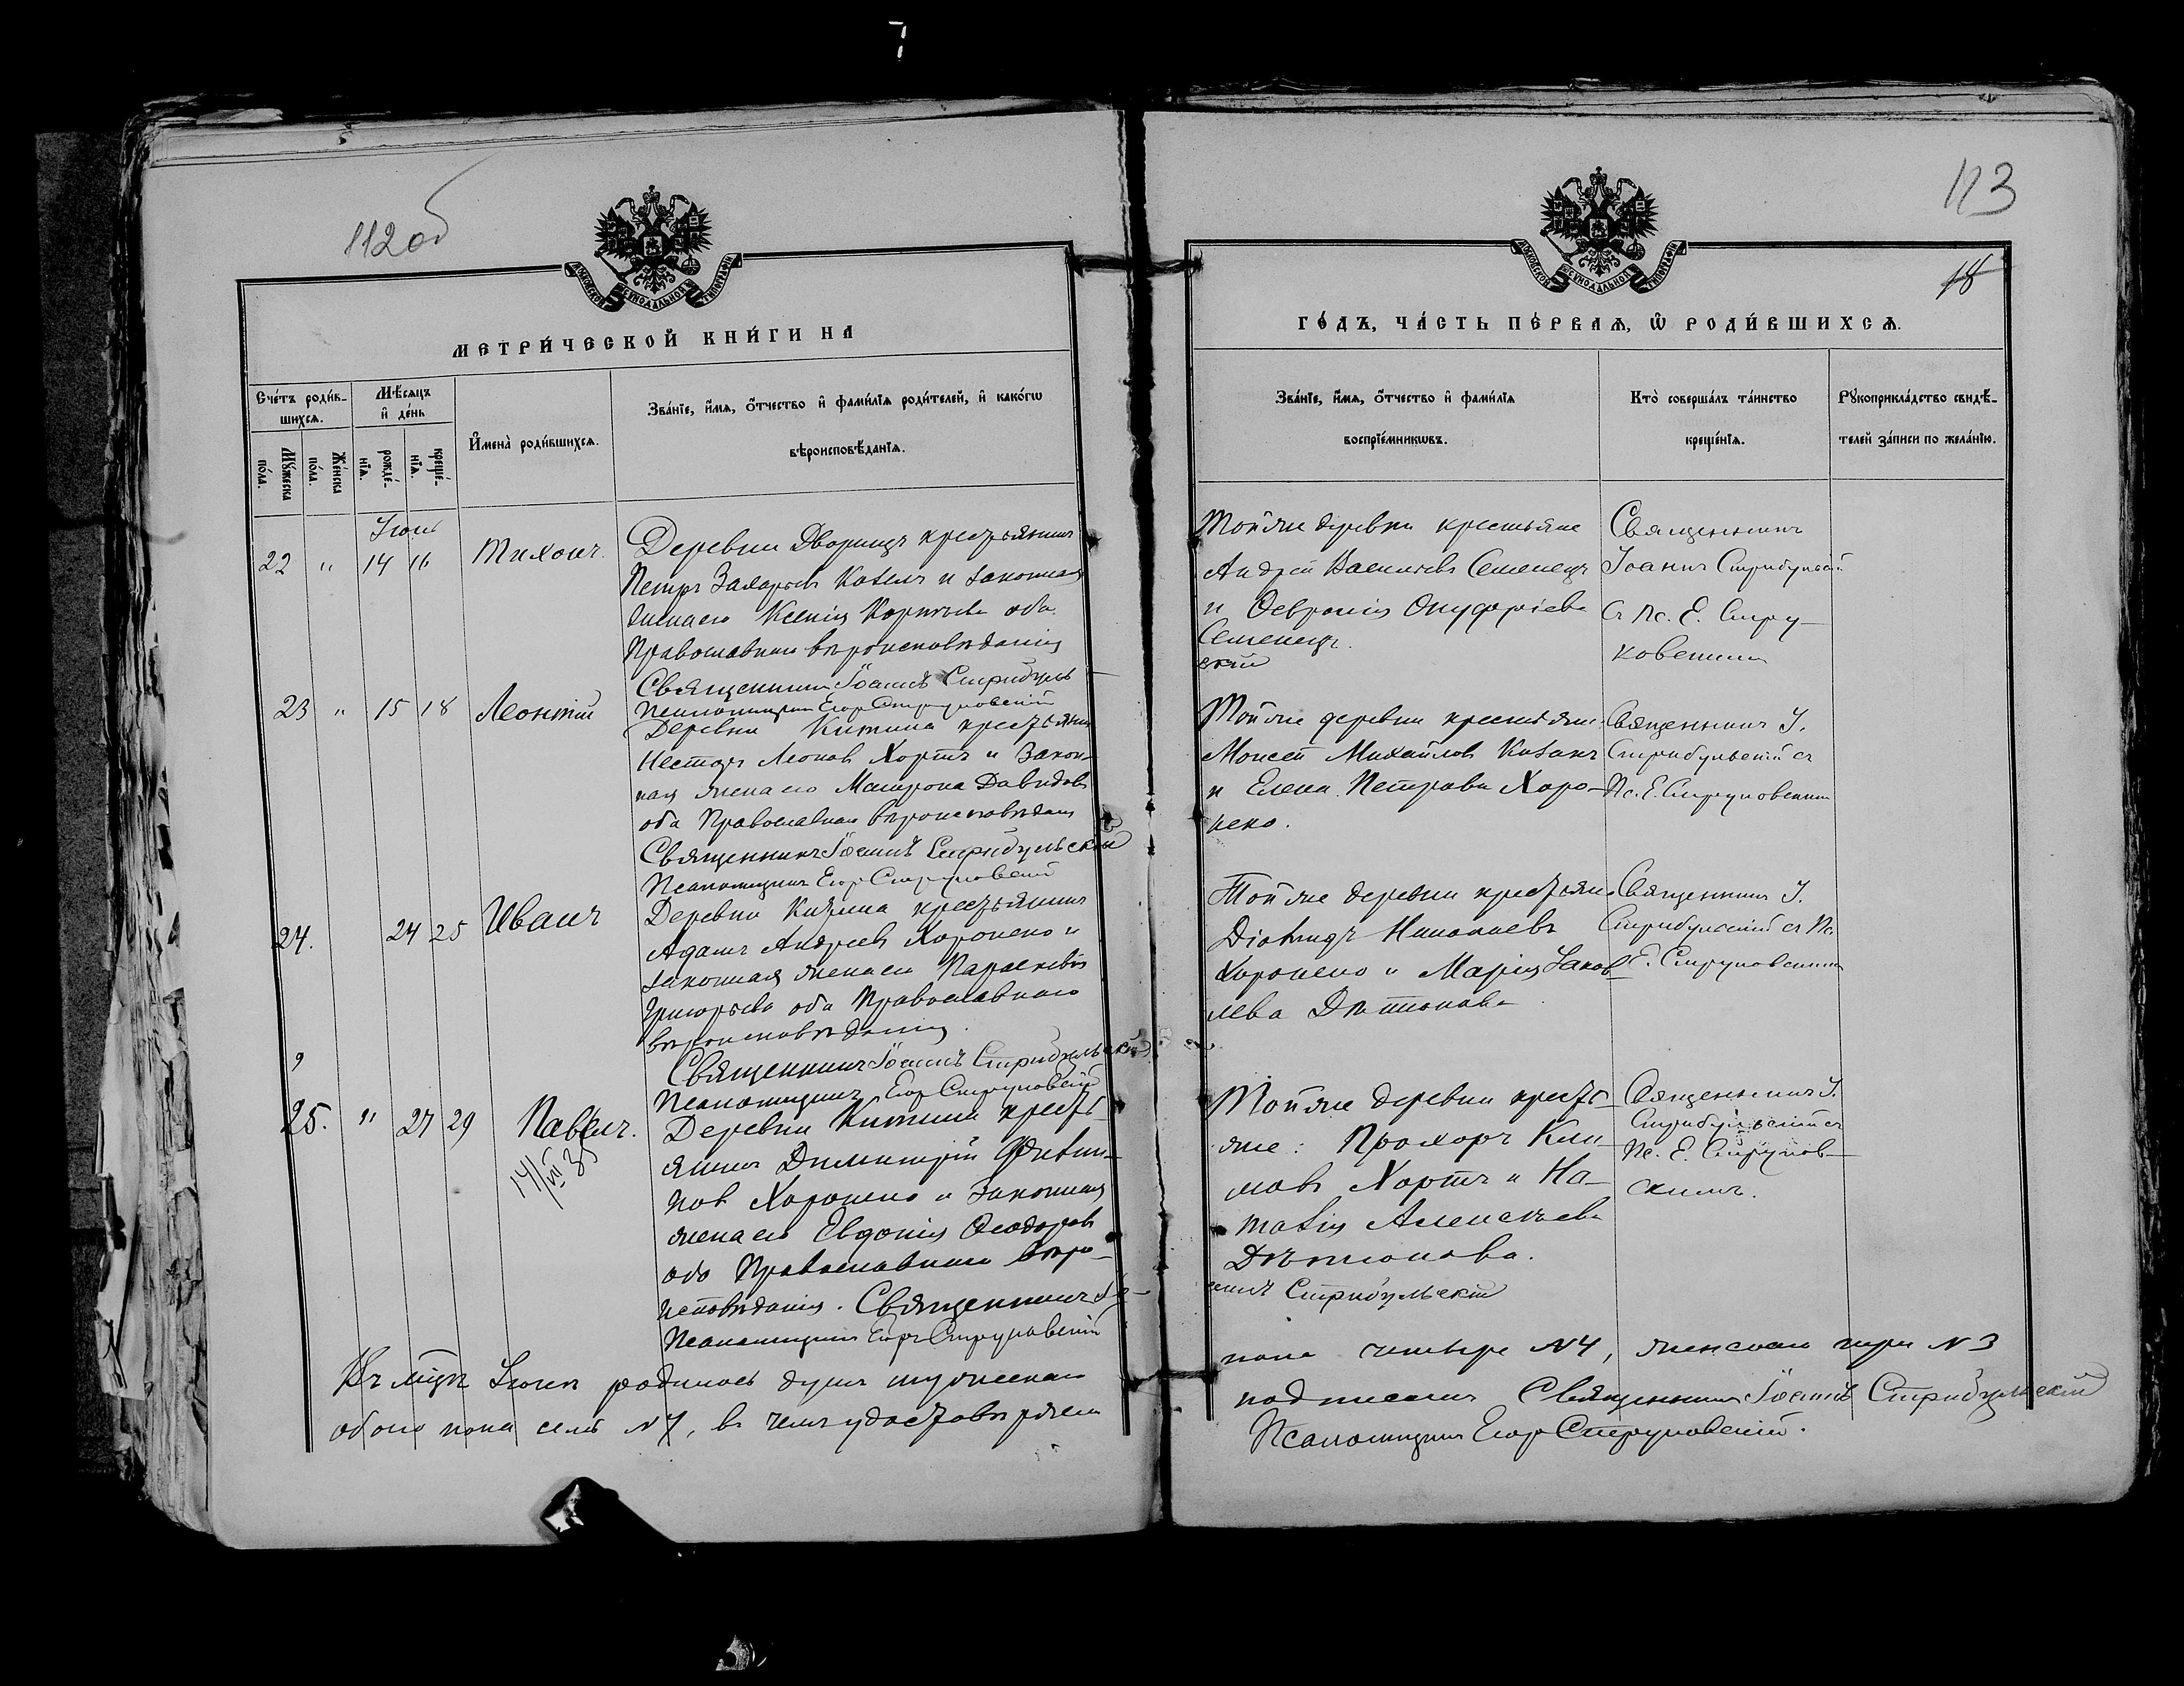 7
112 об
МОСКОВСКОЙ СѴНОДАЛЬНОЙ ТИПОГРАФІИ
МЕТРИ́ЧЕСКОЙ КНИ́ГИ НА
Сче́тъ роди́в-
шихся.
Мꙋ́жеска
по́ла.
Же́нска
по́ла.
Мѣ́сяцъ
и҆ де́нь
рожде́-
нїѧ.
креще́-
нїѧ.
И҆мена̀ роди́вшихсѧ.
Зва́нїе, и҆́мѧ, ѻ҆́тчество и҆ фами́лїѧ роди́телей, и҆ како́гѡ
вѣроисповѣ́данїѧ.
Іюнь
22 " 14 16 Тихонъ.
Деревни Дворищъ крестьянинъ
Петръ Захарьевъ Козелъ и законная
жена его Ксенія Корнѣева оба
Православнаго вѣроисповѣданія
Священникъ Іоаннъ Стрибуль-
Псаломщикъ Егоръ Струковскій
23 " 15 18 Леонтій
Деревни Китина крестьянинъ
Несторъ Леоновъ Хортъ и Закон-
ная жена его Матрона Давидова
оба Православнаго вѣроисповѣданія
Священникъ Іоаннъ Стрибульскій
Псаломщикъ Егоръ Струковскій
24. 24 25 Иванъ
Деревни Китина крестьянинъ
Адамъ Андреевъ Хоронеко и
законная жена его Параскевія
Григорьева оба Православнаго
вѣроисповѣданія.
Священникъ Іоаннъ Стрибульскій
Псаломщикъ Егоръ Струковскій
25. " 27 29 Павелъ.
14/VII 35
Деревни Китина кресть-
янинъ Димитрій
новъ Хоронеко и Законная
жена его Евдокія Ѳеодорова
оба Православнаго вѣро-
исповѣданія. Священникъ Іо-
Псаломщикъ Егоръ Струковскій
Въ мѣцѣ Іюнѣ родилось душъ мужескаго
обоего пола семь N 7, въ чемъ удостовѣряемъ
113
18
МОСКОВСКОЙ СѴНОДАЛЬНОЙ ТИПОГРАФІИ
ГО́ДЪ, ЧА́СТЬ ПЕ́РВАѦ, Ѡ҆ РОДИ́ВШИХСѦ.
Зва́нїе, и҆́мѧ, ѻ҆́тчество и҆ фами́лїѧ
воспрїе́мникѡвъ.
Кто̀ соверша́лъ та́инство
креще́нїѧ.
Рꙋкоприкла́дство свидѣ́-
телей за́писи по жела́нїю.
Той же деревни крестьяне
Андрей Васильевъ Семенецъ
и Февронія Онуфріева
Семенецъ.
скій
Священникъ
Іоаннъ Стрибульскій
съ Пс. Е. Стру-
ковскимъ
Той же деревни крестьяне
Моисей Михайловъ Козакъ
и Елена Петрова Хоро-
неко.
Священникъ І.
Стрибульскій съ
Пс. Е. Струковскимъ
Той же деревни крестьяне
Діомидъ Николаевъ
Хоронеко и Марія Яков-
лева Дѣтюкова
Священникъ І.
Стрибульскій съ Пс.
Е. Струковскимъ
Той же деревни кресть-
яне: Прохоръ Кли-
мовъ Хортъ и На-
талія Алексѣева
Дѣтюкова.
аннъ Стрибульскій
Священникъ І.
Стрибульскій съ
Пс. Е. Струков-
скимъ.
пола четыре N 4, женскаго три N 3
подписомъ Священникъ Іоаннъ Стрибульскій
Псаломщикъ Егоръ Струковскій.